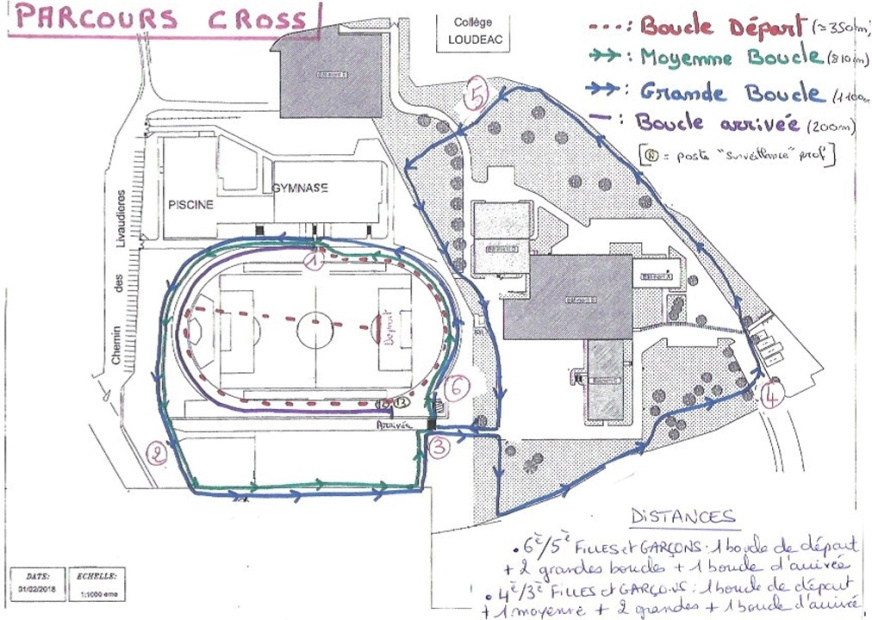 PARCOURS CROSS
Collège
LOUDEAC
: Boucle Départ (≃350m)
: Moyenne Boucle (810m)
: Grande Boucle (1100m
: Boucle arrivée (200m)
[N = poste "surveillance" prof]
5
PISCINE
GYMNASE
Chemin des Livaudières
1
Départ
6
4
Arrivée
2
3
DISTANCES
• 6è/5è FILLES et GARÇONS : 1 boucle de départ
+ 2 grandes boucles + 1 boucle d'arrivée
• 4è/3è FILLES et GARÇONS : 1 boucle de départ
+ 1 moyenne + 2 grandes + 1 boucle d'arrivée
DATE:
01/02/2018
ECHELLE:
1:1000 eme